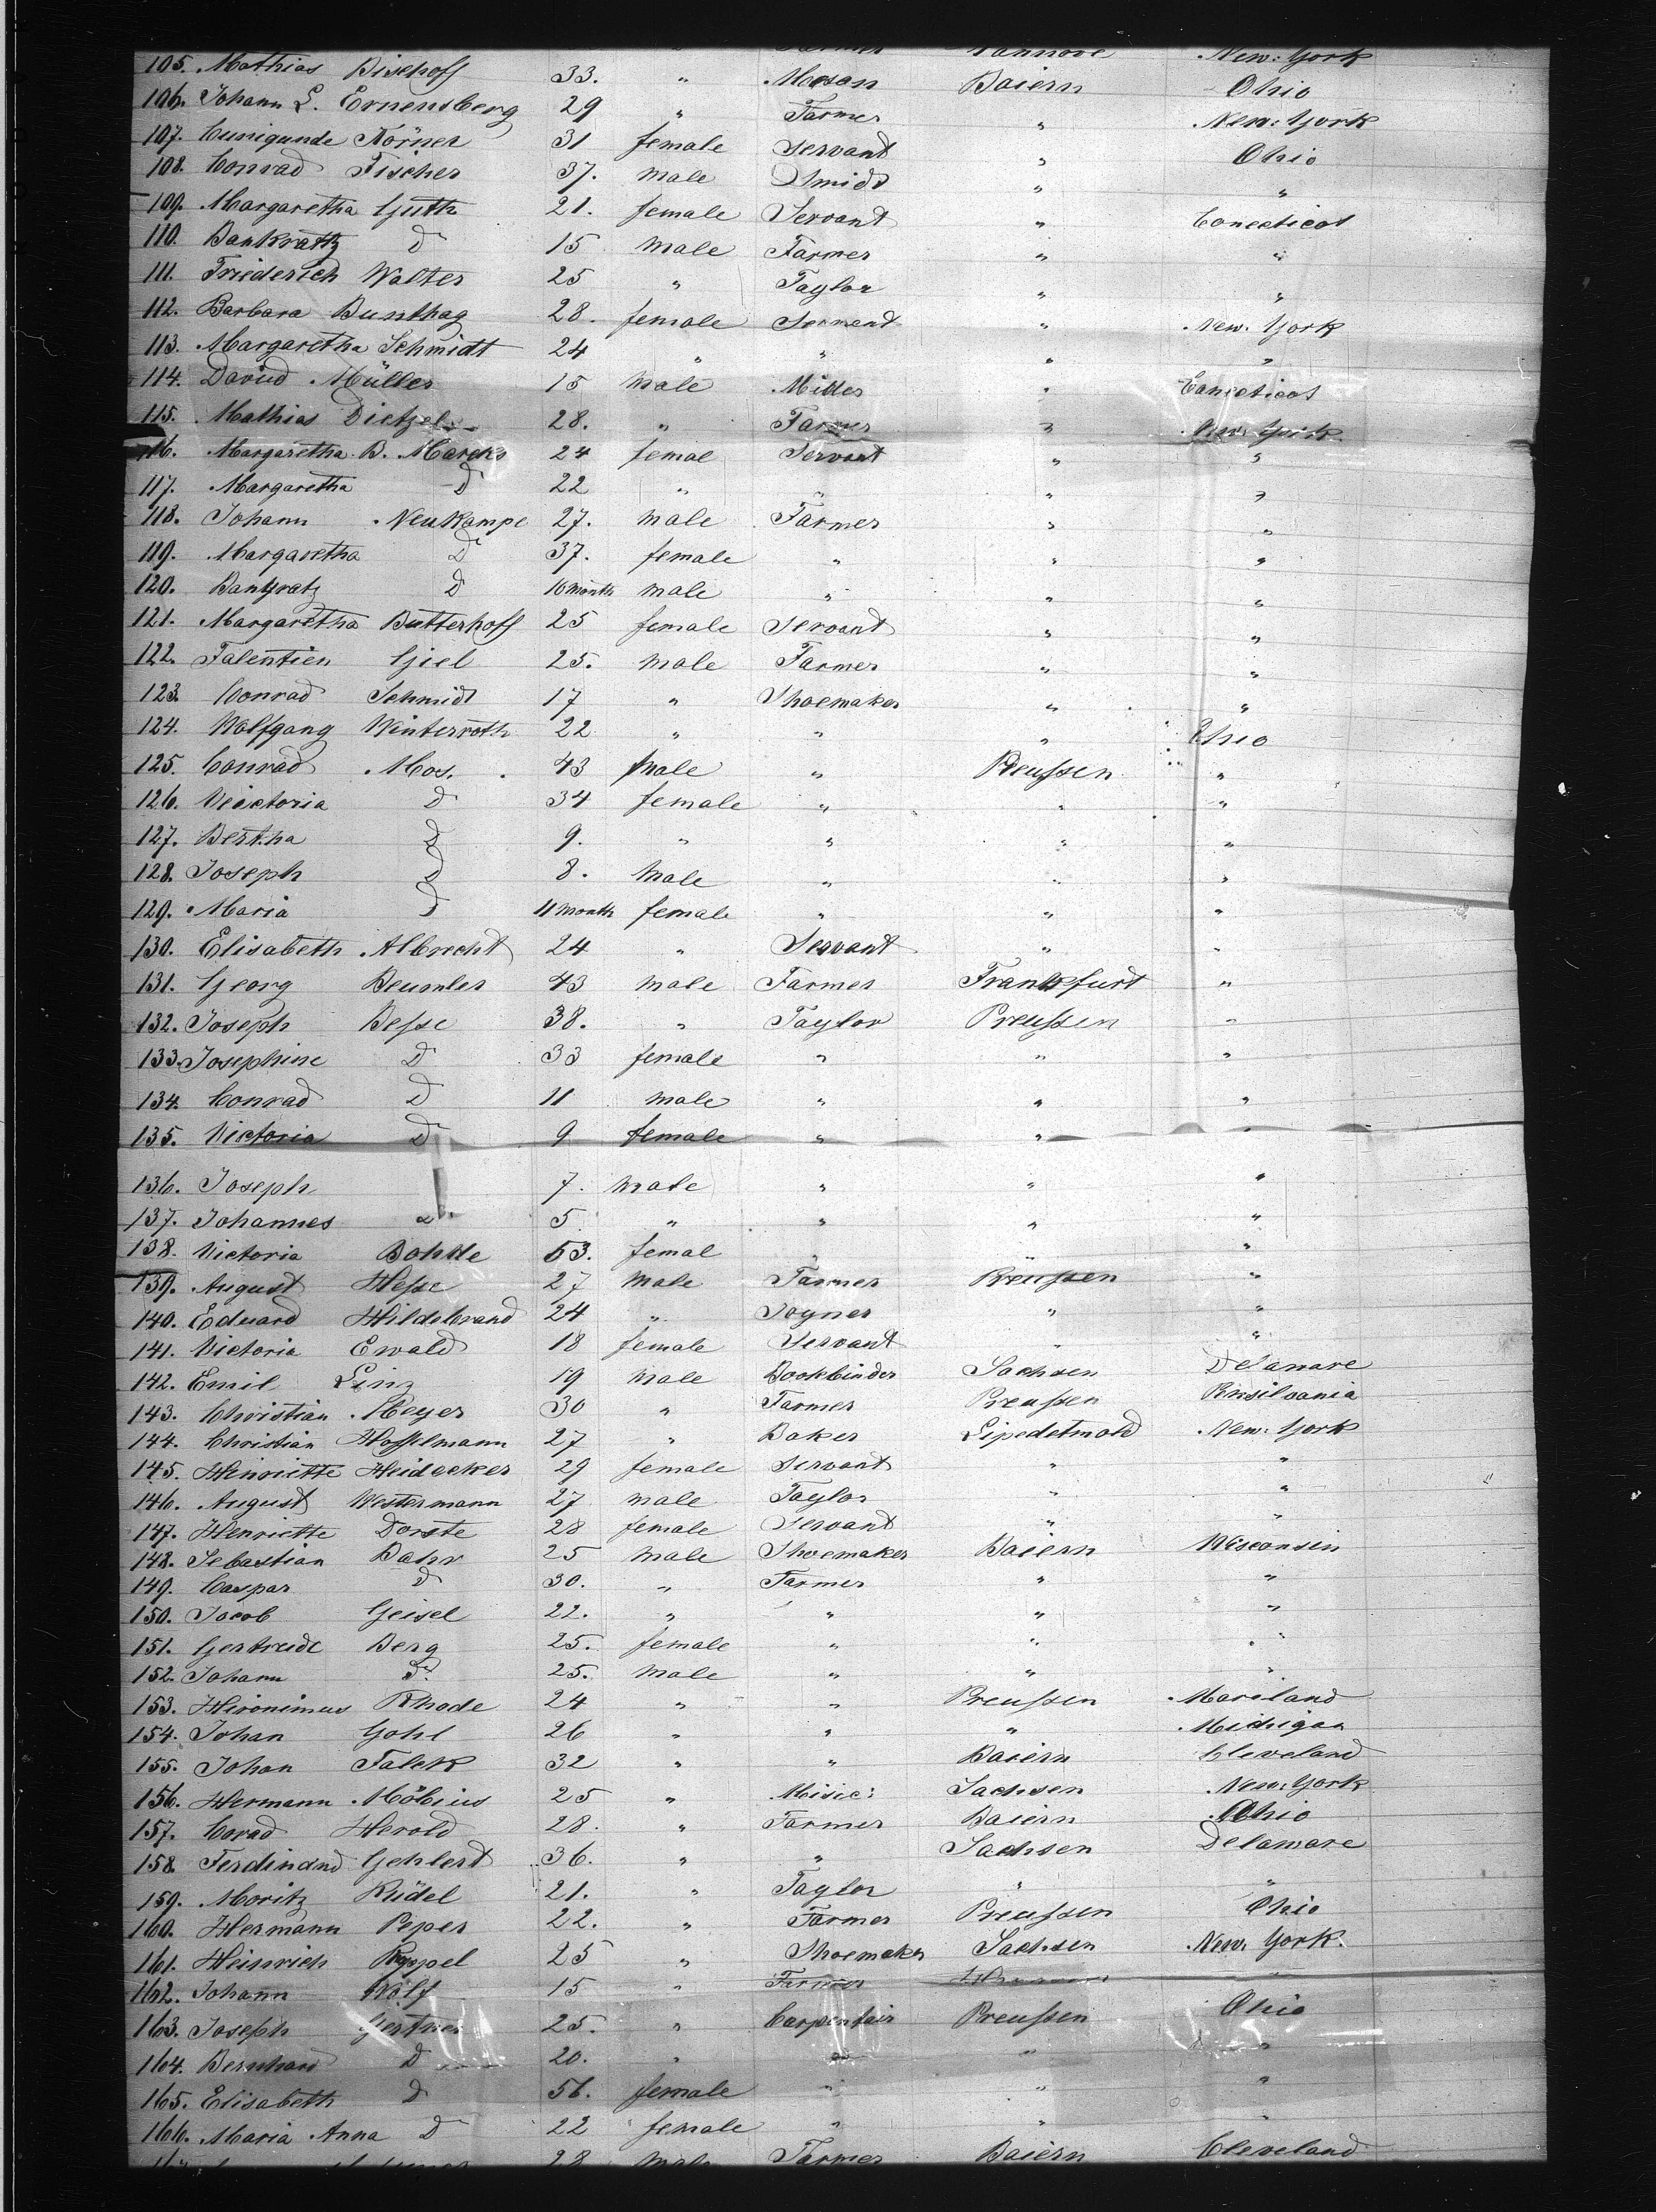 Farmer Hannove New-York
105. Mathias Bischoff 33. " Meson Baiern Ohio
106. Johann L. Ernensberg 29 " Farmer " New-York
107. Cunigunde Körner 31 female Servant " Ohio
108. Conrad Fischer 37. male Smidt " "
109. Margaretha Guth 21. female Servant " Conecticot
110. Bankratz D 15 male Farmer " "
111. Friederich Walter 25 " Taylor " "
112. Barbara Bunthag 28. female Servant " New-York
113. Margaretha Schmidt 24 " " " "
114. David Müller 15 male Miller " Conecticot
115. Mathias Dietzel 28. " Farmer " New-York
116. Margaretha B. Marcks 24 femal Servant " "
117. Margaretha D 22 " " " "
118. Johann Neukampe 27. male Farmer " "
119. Margaretha D 37. female " " "
120. Bankratz D 10 month male " " "
121. Margaretha Butterhoff 25 female Servant " "
122. Falentien Giel 25. male Farmer " "
123. Conrad Schmidt 17 " Shoemaker " "
124. Wolfgang Winterroth 22 " " " Ohio
125. Conrad Mos. 43 male " Preussen "
126. Victoria D 34 female " " "
127. Bertha D 9. " " " "
128. Joseph D 8. male " " "
129. Maria D 11 month female " " "
130. Elisabeth Albrecht 24 " Servant " "
131. Georg Beumler 43 male Farmer Frankfurt "
132. Joseph Besse 38. " Taylor Preussen "
133. Josephine D 33 female " " "
134. Conrad D 11 male " " "
135. Victoria D 9 female " " "
136. Joseph 7. male " " "
137. Johannes D 5 " " " "
138. Victoria Bohlle 53. femal " " "
139. August Hesse 27 male Farmer Preussen "
140. Eduard Hildebrand 24 " Joyner " "
141. Victoria Ewald 18 female Servant " "
142. Emil Ling 19 male Bookbinder Sachsen Delaware
143. Christian Meyer 30 " Farmer Preussen Pensilvania
144. Christian Hosselmann 27 " Baker Lipedetmold New-York
145. Henriette Heidecker 29 female Servant " "
146. August Westermann 27 male Taylor " "
147. Henriette Dorste 28 female Servant " "
148. Sebastian Bahr 25 male Shoemaker Baiern Wisconsin
149. Caspar D 30. " Farmer " "
150. Jacob Geisel 22. " " " "
151. Gertrude Berg 25. female " " "
152. Johann D. 25. male " " "
153. Hironimus Rhode 24 " " Preussen Mariland
154. Johan Gohl 26 " " " Michigan
155. Johan Falck 32 " " Baiern Cleveland
156. Hermann Möbius 25 " Misic: Sachsen New-York
157. Corad Herold 28. " Farmer Baiern Ohio
158. Ferdinand Gehlert 36. " " Sachsen Delaware
159. Moritz Rüdel 21. " Taylor " "
160. Hermann Peper 22. " Farmer Preussen Ohio
161. Heinrich Ruppel 25 " Shoemaker Sachsen New-York
162. Johann Wolf 15 " Farmer "
163. Joseph Gertner 25. " Carpentair Preussen Ohio
164. Bernhard D 20. " " " "
165. Elisabeth D 56. female " " "
166. Maria Anna D 22 female " " "
28 male Farmer Baiern Cleveland